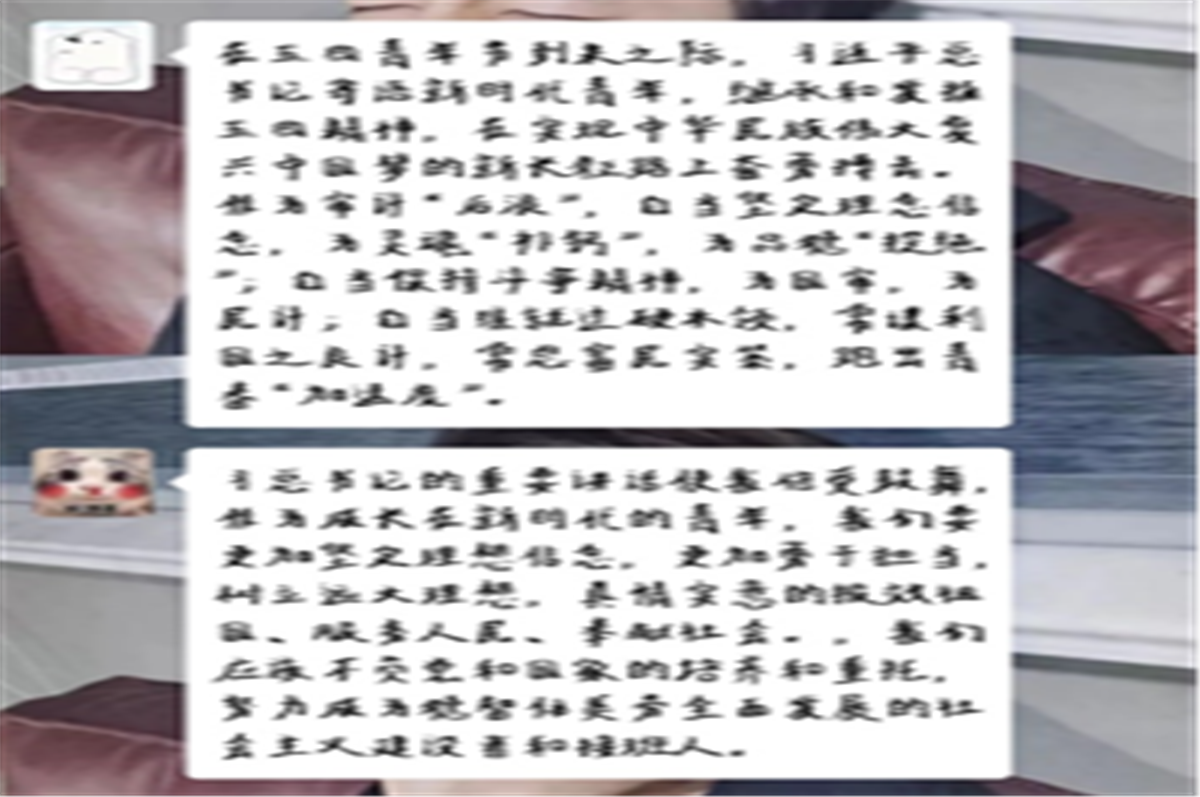 在五四青年节到来之际，习近平总
书记寄语新时代青年，继承和发扬
五四精神，在实现中华民族伟大复
兴中国梦的新长征路上奋勇搏击。
作为审计“后浪”，应当坚定理想信
念，为灵魂“补钙”，为品德“提纯
”；应当保持斗争精神，为国审，为
民计；应当练就过硬本领，常谋利
国之良计，常思富民实策，跑出青
春“加速度”。
习总书记的重要讲话使我倍受鼓舞，
作为成长在新时代的青年，我们要
更加坚定理想信念，更加勇于担当，
树立远大理想，真情实意的报效祖
国、服务人民、奉献社会。，我们
应该不负党和国家的培养和重托，
努力成为德智体美劳全面发展的社
会主义建设者和接班人。